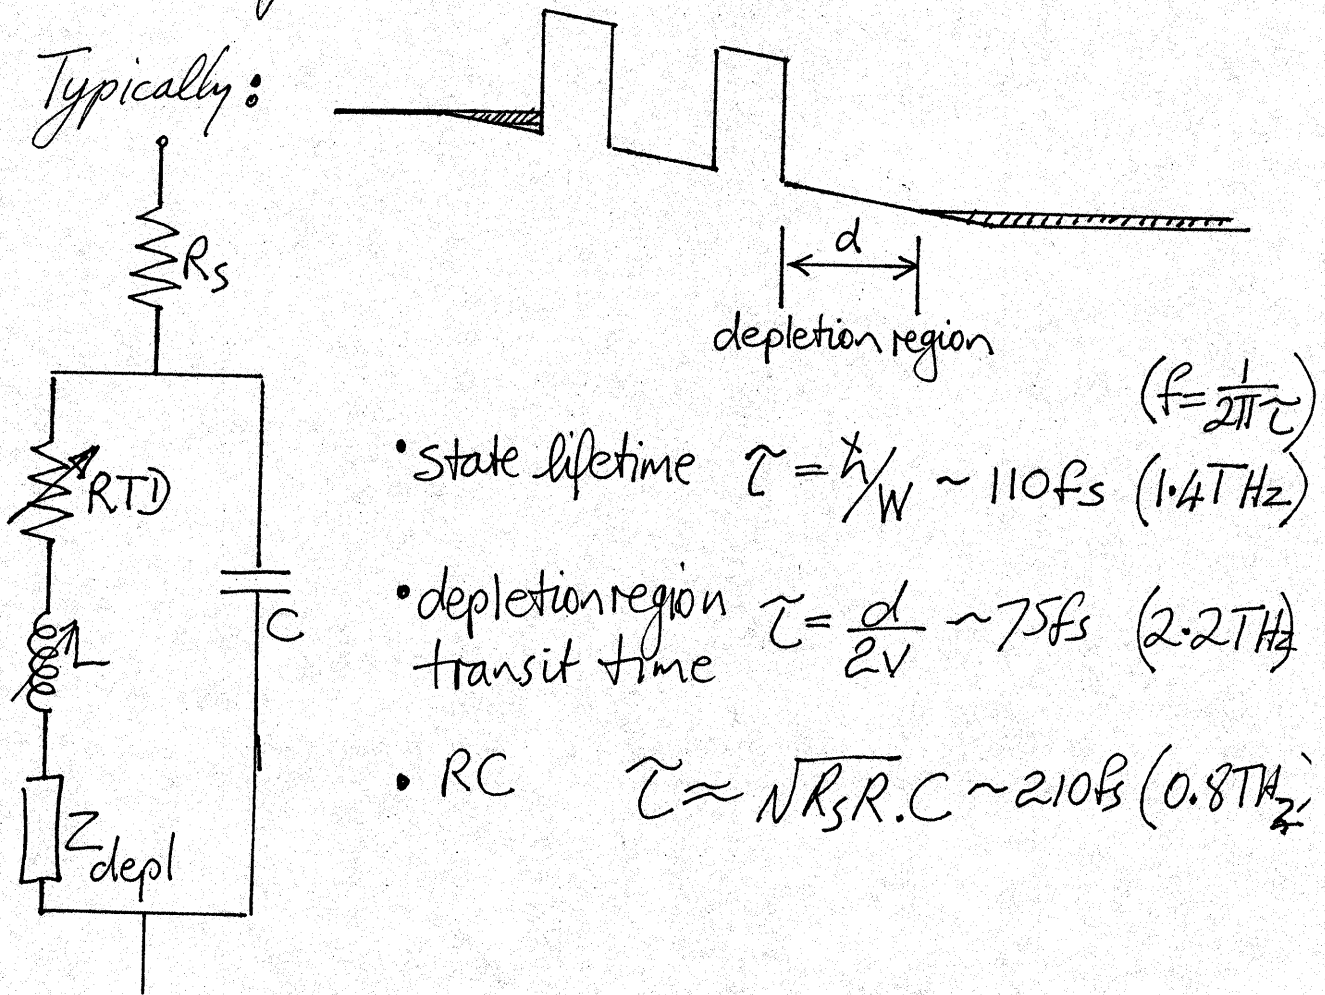 Typically:
R_S
d
depletion region
(f = 1/2πτ)
RTD
• state lifetime τ = ħ/W ~ 110fs (1.4THz)
L
C
• depletion region transit time τ = d/2v ~ 75fs (2.2THz)
Z_depl
• RC τ ≈ √R_SR.C ~ 210fs (0.8THz)